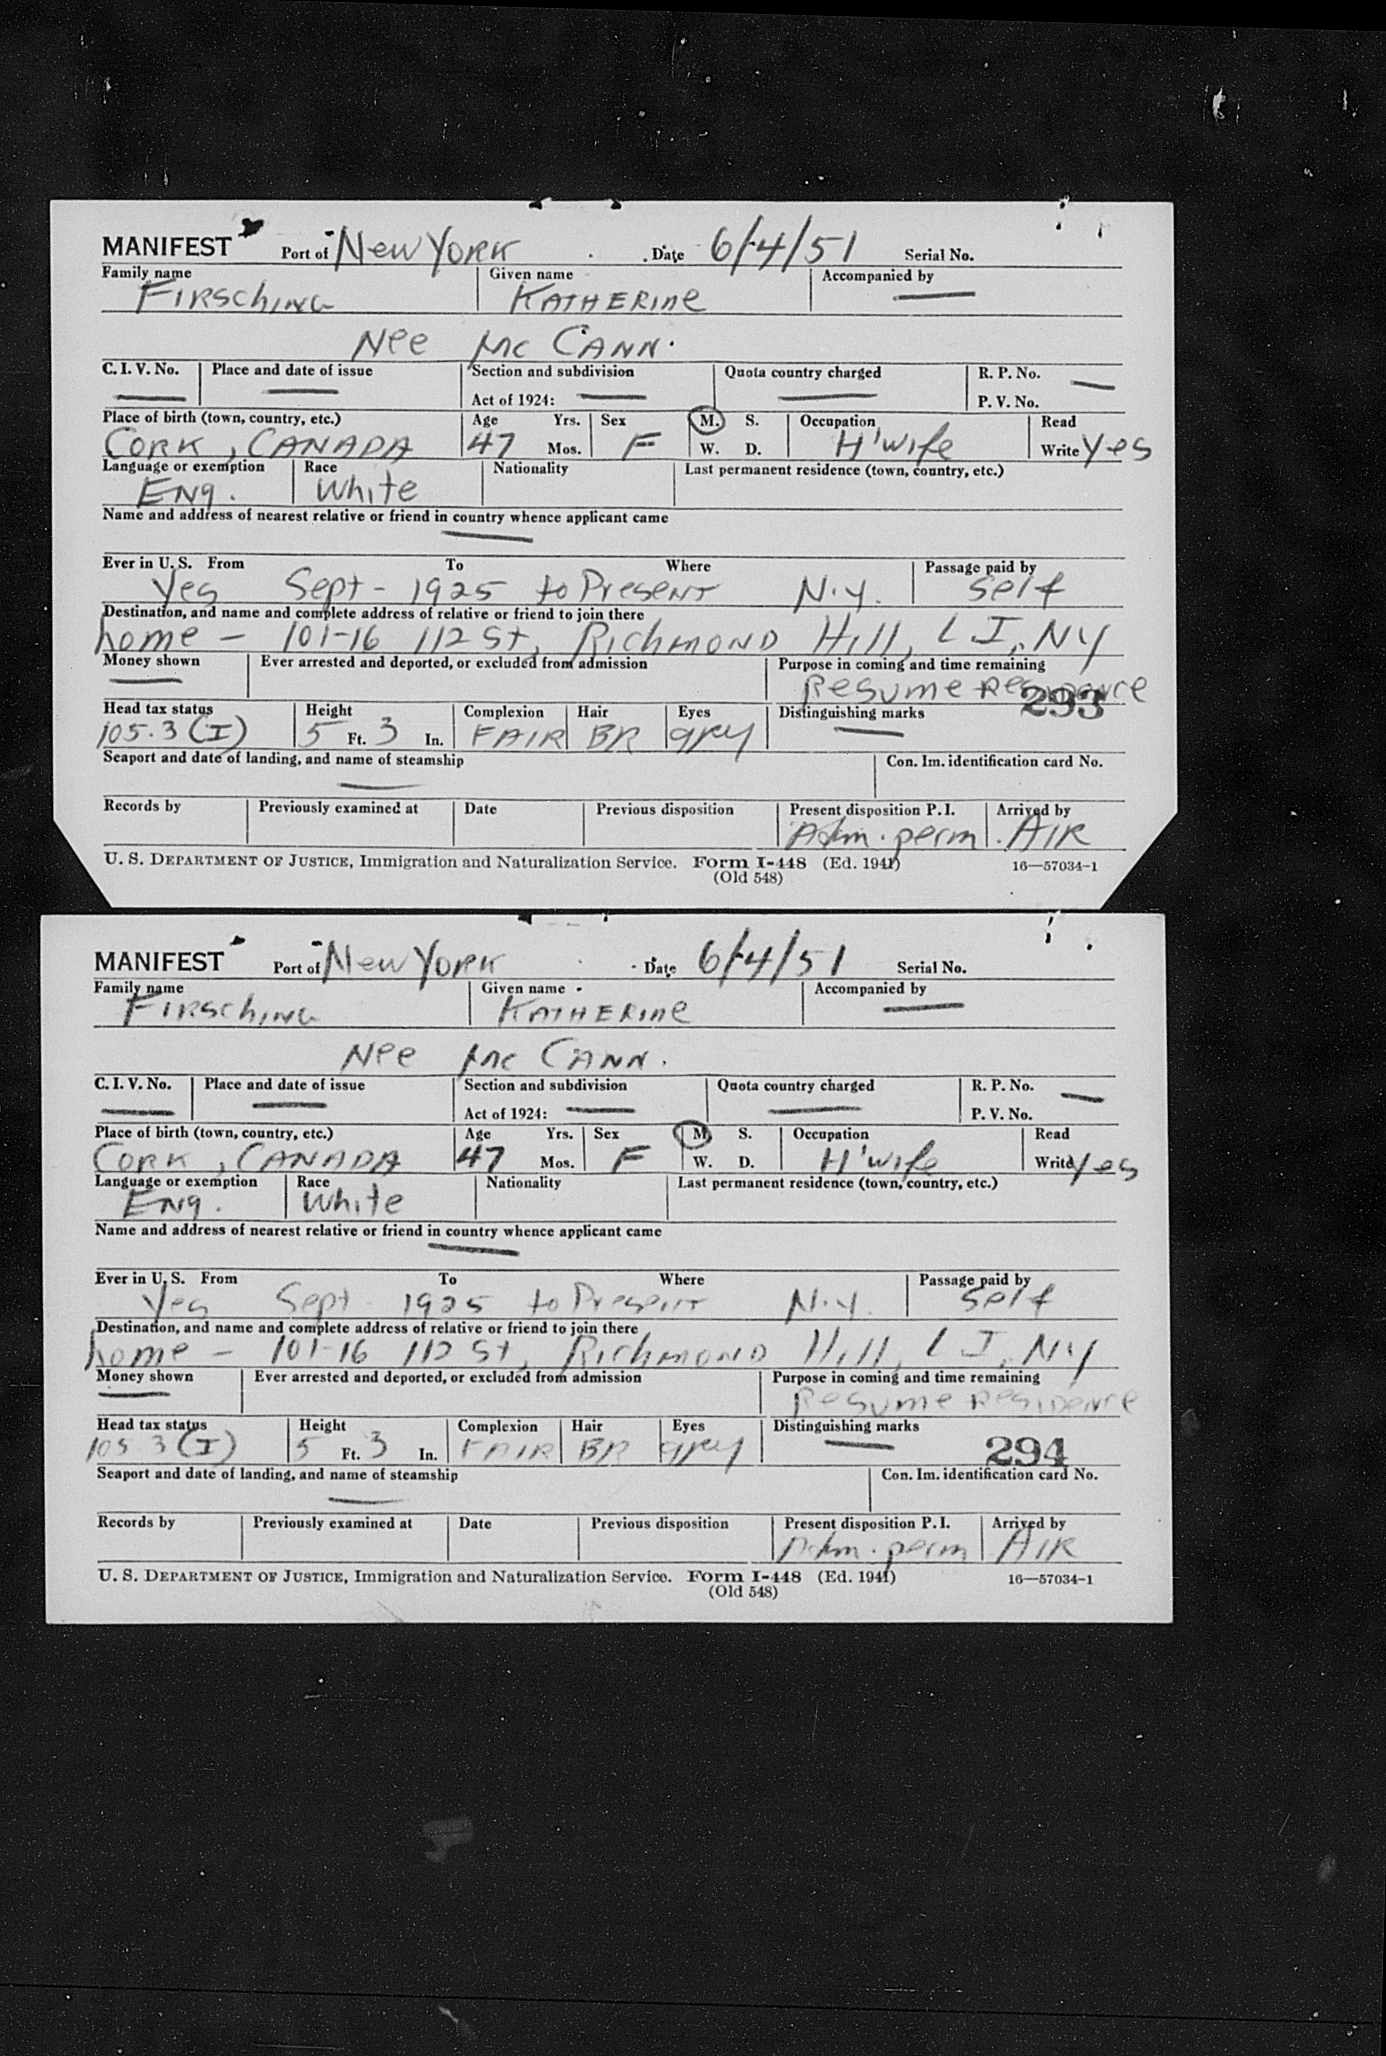 MANIFEST Port of New York Date 6/4/51 Serial No.
Family name Given name Accompanied by
Firsching Katherine —
Nee McCann.
C. I. V. No. Place and date of issue Section and subdivision Quota country charged R. P. No. —
— — Act of 1924: — — P. V. No.
Place of birth (town, country, etc.) Age Yrs. Sex M. S. Occupation Read
Cork, Canada 47 Mos. F W. D. H'wife Write Yes
Language or exemption Race Nationality Last permanent residence (town, country, etc.)
Eng. White
Name and address of nearest relative or friend in country whence applicant came
—
Ever in U. S. From To Where Passage paid by
Yes Sept - 1925 to Present N.Y. Self
Destination, and name and complete address of relative or friend to join there
home - 101-16 112 St, Richmond Hill, L I, NY
Money shown Ever arrested and deported, or excluded from admission Purpose in coming and time remaining
— Resume Residence
293
Head tax status Height Complexion Hair Eyes Distinguishing marks
105.3 (I) 5 Ft. 3 In. Fair Br grey —
Seaport and date of landing, and name of steamship Con. Im. identification card No.
—
Records by Previously examined at Date Previous disposition Present disposition P. I. Arrived by
Adm. perm. Air
U. S. DEPARTMENT OF JUSTICE, Immigration and Naturalization Service. Form I-448 (Ed. 1941) 16—57034-1
(Old 548)
MANIFEST Port of New York Date 6/4/51 Serial No.
Family name Given name Accompanied by
Firsching Katherine —
Nee McCann.
C. I. V. No. Place and date of issue Section and subdivision Quota country charged R. P. No. —
— — Act of 1924: — — P. V. No.
Place of birth (town, country, etc.) Age Yrs. Sex M. S. Occupation Read
Cork, Canada 47 Mos. F W. D. H'wife Write Yes
Language or exemption Race Nationality Last permanent residence (town, country, etc.)
Eng. White
Name and address of nearest relative or friend in country whence applicant came
—
Ever in U. S. From To Where Passage paid by
Yes Sept 1925 to Present N.Y. Self
Destination, and name and complete address of relative or friend to join there
home - 101-16 112 St, Richmond Hill, L I, NY
Money shown Ever arrested and deported, or excluded from admission Purpose in coming and time remaining
— Resume Residence
Head tax status Height Complexion Hair Eyes Distinguishing marks
105.3 (I) 5 Ft. 3 In. Fair Br grey —
294
Seaport and date of landing, and name of steamship Con. Im. identification card No.
—
Records by Previously examined at Date Previous disposition Present disposition P. I. Arrived by
Adm. perm Air
U. S. DEPARTMENT OF JUSTICE, Immigration and Naturalization Service. Form I-448 (Ed. 1941) 16—57034-1
(Old 548)